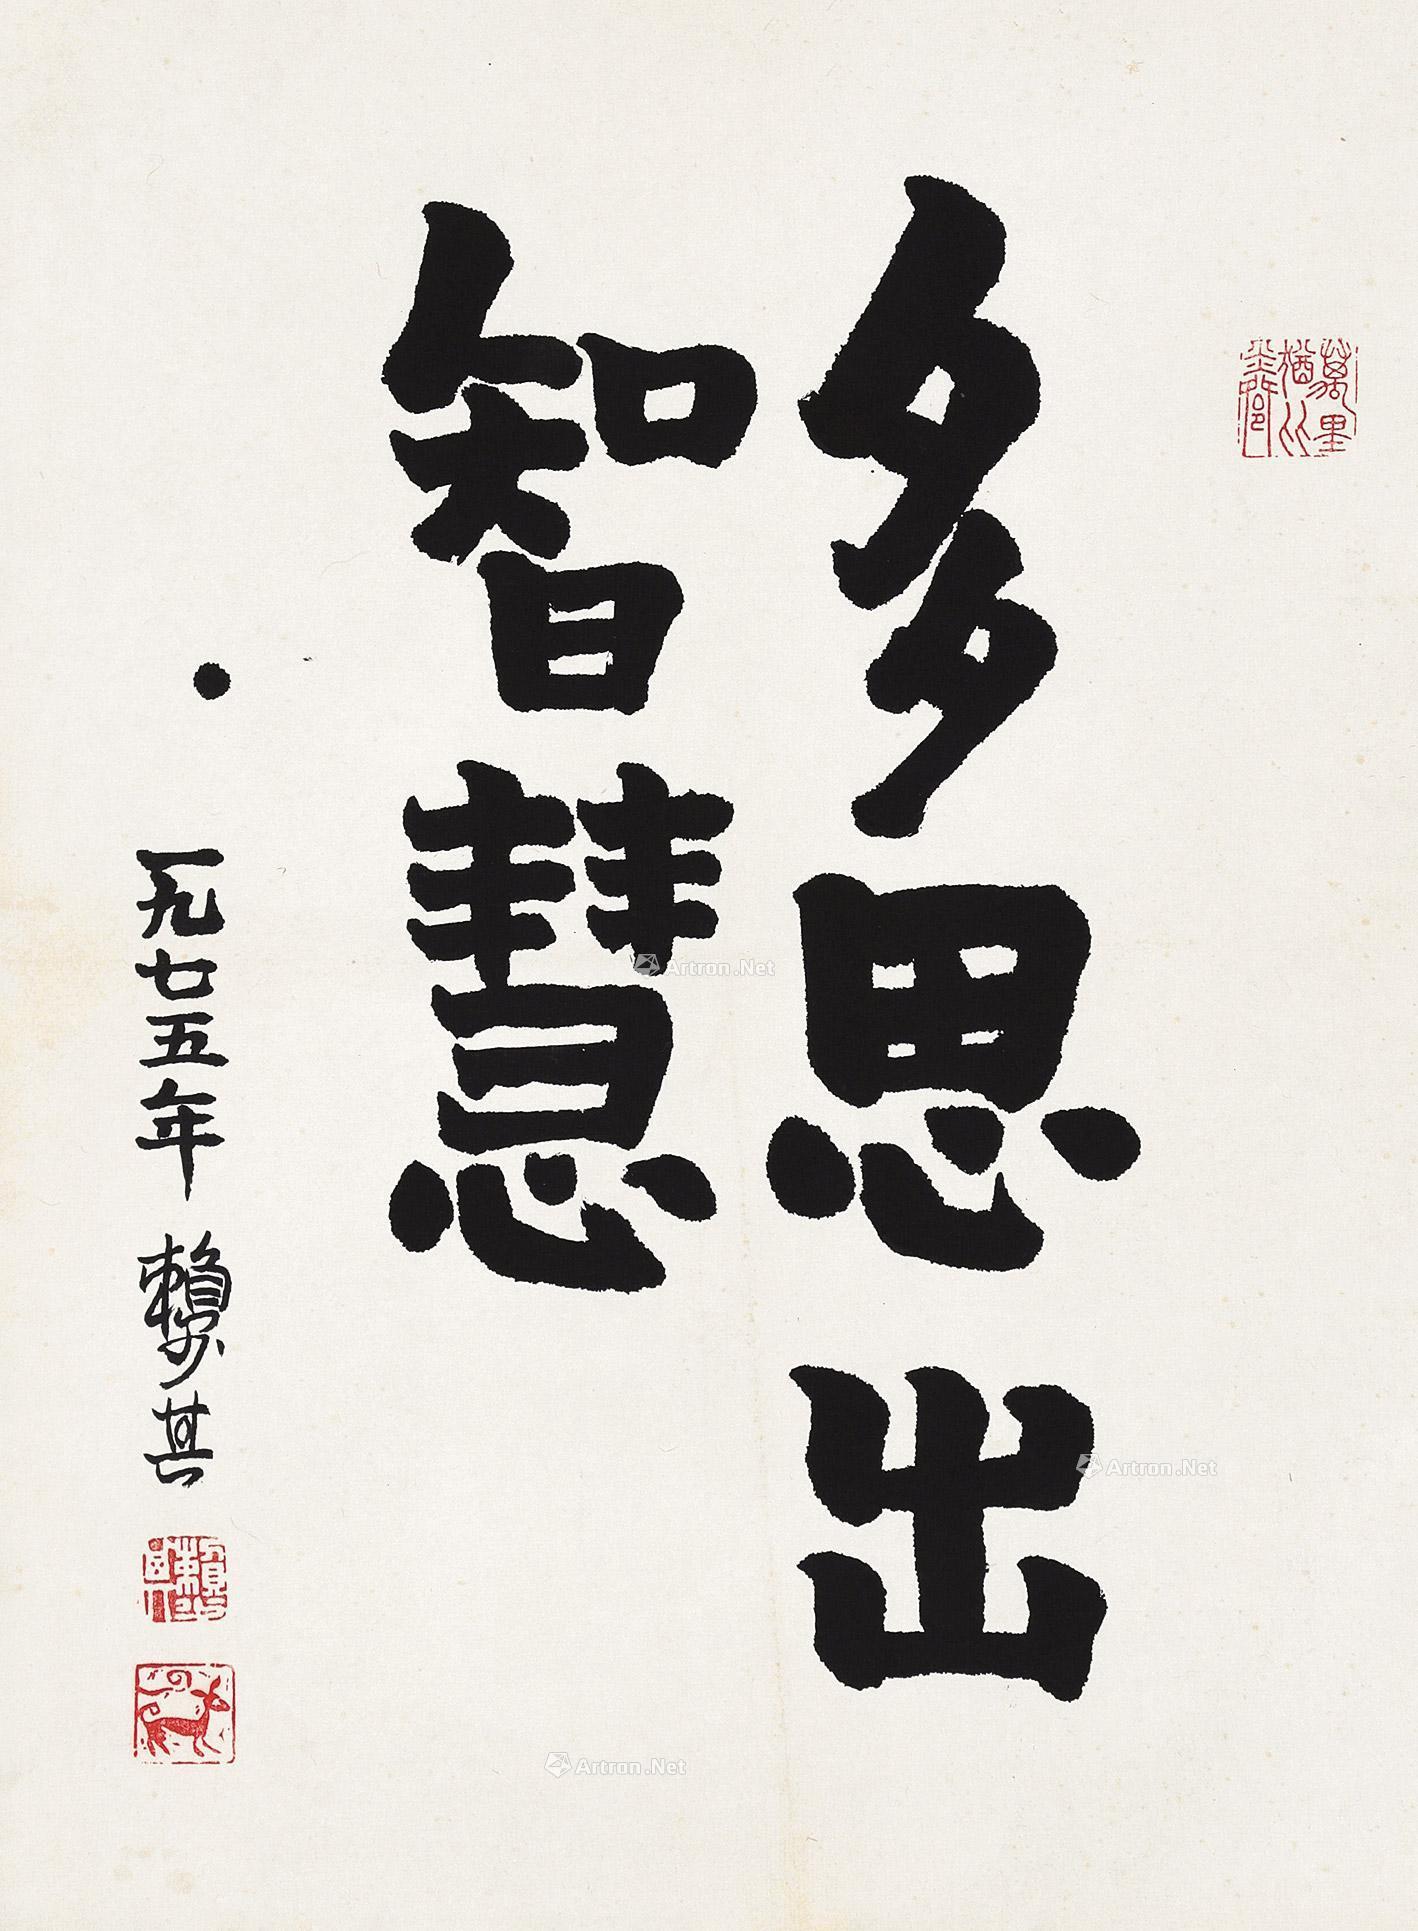 多思出
智慧
一九七五年 賴少其
Artron.Net
Artron.Net
Artron.Net